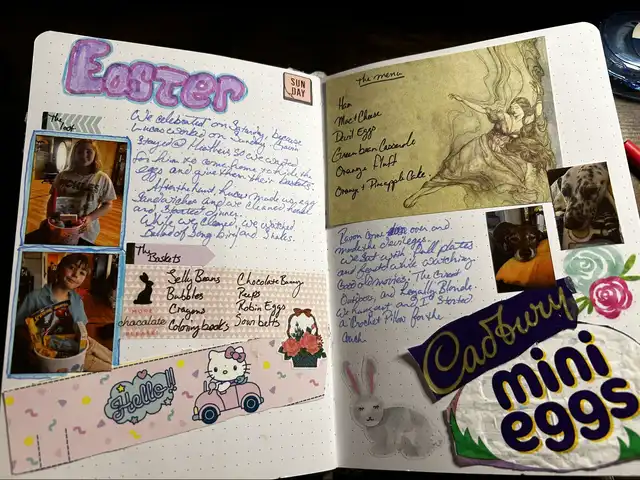 Easter
SUN
DAY
The
We celebrated on Saturday because
Lucas worked on Sunday.
stayed @ Heather's so we waited
for him to come home to hide the
eggs and give them their baskets.
After the hunt Lucas made us egg
sandwiches and we cleaned house
and started dinner.
While we cleaned, we watched
Ballad of Song birds and Snakes.
The
Baskets
Jelly Beans
Bubbles
Crayons
Coloring books
Chocolate Bunny
Peeps
Robin Eggs
MORE
chocolate
Hello!!
The menu
Ham
Mac & Cheese
Devil Eggs
Green bean Casserole
Orange Fluff
Orange + Pineapple Cake
come over and
made the
we sat with full plates
and
while watching
Good old movies. The Great
Outdoors, and Legally Blonde.
and I started
a Crochet Pillow for the
Couch.
Cadbury
mini
eggs